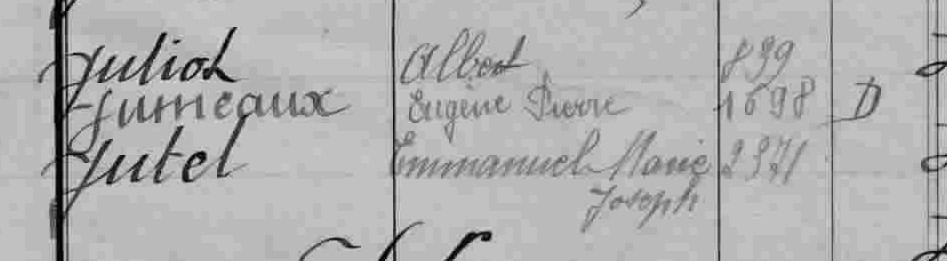 Juliot Albert 899
Jumeaux Eugène Pierre 1698 D
Jutel Emmanuel Marie 2371
Joseph